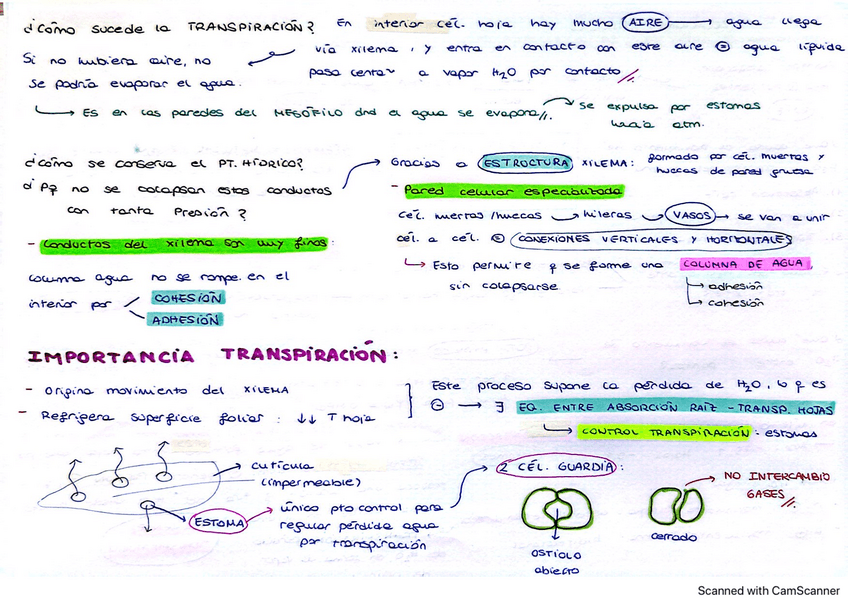 ¿Cómo sucede la TRANSPIRACIÓN? En interior cél. hoja hay mucho AIRE → agua llega
vía xilema, y entra en contacto con este aire ⊖ agua líquida
Si no hubiera aire, no
pasa lenta a vapor H₂O por contacto
se podría evaporar el agua.
↳ Es en las paredes del MESÓFILO dnd el agua se evapora → se expulsa por estomas
hacia atm.
¿Cómo se conserva el PT. HÍDRICO?
¿Pq no se colapsan estos conductos
con tanta presión?
→ Gracias a ESTRUCTURA XILEMA: formado por cél. muertas y
huecas de pared gruesa
- Pared celular especializada
cél. muertas/huecas → hileras → VASOS → se van a unir
cél. a cél. ⊖ CONEXIONES VERTICALES Y HORIZONTALES
↳ Esto permite q se forme una COLUMNA DE AGUA,
sin colapsarse
→ adhesión
→ cohesión
- Conductos del xilema son muy finos:
columna agua no se rompe en el
interior por
COHESIÓN
ADHESIÓN
IMPORTANCIA TRANSPIRACIÓN:
- Origina movimiento del XILEMA
- Refrigera superficie foliar: ↓↓ T hoja
Este proceso supone la pérdida de H₂O, lo q es
⊖ → ∃ EQ. ENTRE ABSORCIÓN RAÍZ - TRANSP. HOJAS
↳ CONTROL TRANSPIRACIÓN: estomas
cutícula
(impermeable)
ESTOMA → único pto control para
regular pérdida agua
por transpiración
2 CÉL. GUARDIA:
OSTIOLO
abierto
cerrado
→ NO INTERCAMBIO
GASES
Scanned with CamScanner